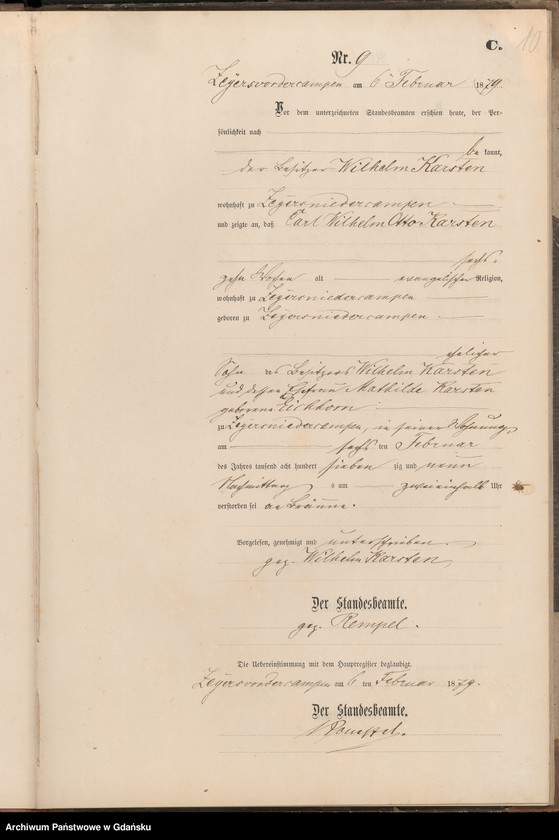 C.
10
Nr. 9
Zeyersvordercampen am 6ten Februar 1879.
Vor dem unterzeichneten Standesbeamten erschien heute, der Per-
sönlichkeit nach
be kannt,
der Besitzer Wilhelm Karsten
wohnhaft zu Zeyersniedercampen
und zeigte an, daß Carl Wilhelm Otto Karsten
sech-
zehn Wochen alt evangelischer Religion,
wohnhaft zu Zeyersniedercampen
geboren zu Zeyersniedercampen
ehelicher
Sohn des Besitzers Wilhelm Karsten
und dessen Ehefrau Mathilde Karsten
geborene Eichhorn
zu Zeyersniedercampen, in seiner Wohnung,
am sechs ten Februar
des Jahres tausend acht hundert sieben zig und neun
Nachmittag s um zweieinhalb Uhr
verstorben sei an Bräune.
Vorgelesen, genehmigt und unterschrieben
gez. Wilhelm Karsten
Der Standesbeamte.
gez. Rempel.
Die Uebereinstimmung mit dem Hauptregister beglaubigt.
Zeyersvordercampen am 6 ten Februar 1879.
Der Standesbeamte.
Archiwum Państwowe w Gdańsku